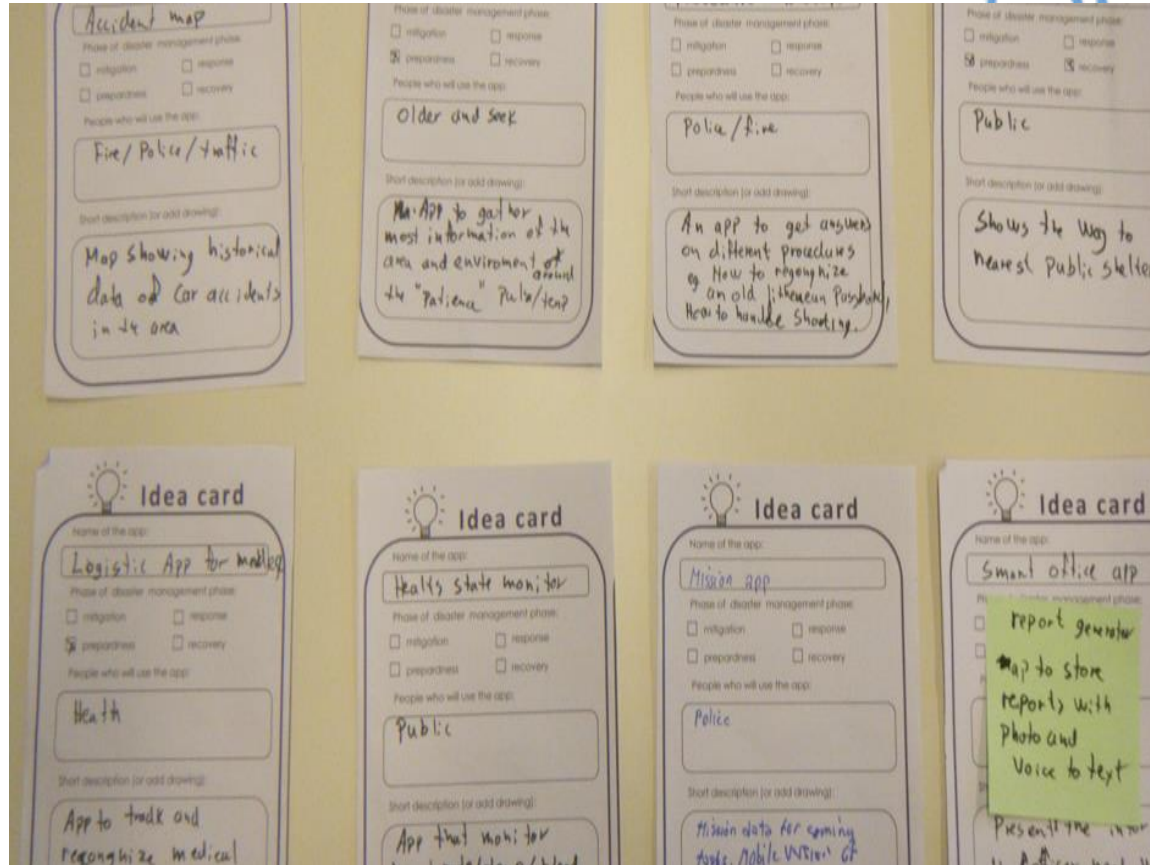 Accident map
Phase of disaster management phase:
mitigation response
prepardness recovery
People who will use the app:
Fire/Police/traffic
Short description (or add drawing):
Map showing historical
data of Car accidents
in the area
Phase of disaster management phase:
mitigation response
prepardness recovery
People who will use the app:
Older and seek
Short description (or add drawing):
An App to gather
most information of the
area and enviroment of
around
the "Patience" Puls/temp
Phase of disaster management phase:
mitigation response
prepardness recovery
People who will use the app:
Police/fire
Short description (or add drawing):
An app to get answers
on different procedures
eg How to regonghize
an old
How to handle Shooting.
Phase of disaster management phase:
mitigation response
prepardness recovery
People who will use the app:
Public
Short description (or add drawing):
Shows the Way to
nearest Public shelte
Idea card
Name of the app:
Logistic App for
Phase of disaster management phase:
mitigation response
prepardness recovery
People who will use the app:
Health
Short description (or add drawing):
App to track and
regonghize medical
Idea card
Name of the app:
Healts state monitor
Phase of disaster management phase:
mitigation response
prepardness recovery
People who will use the app:
Public
Short description (or add drawing):
App that monitor
Idea card
Name of the app:
Mission app
Phase of disaster management phase:
mitigation response
prepardness recovery
People who will use the app:
Police
Short description (or add drawing):
Mission data for coming
Mobile
Idea card
Name of the app:
Smart office app
management phase:
report generator
Map to store
reports with
Photo and
Voice to text
Present the